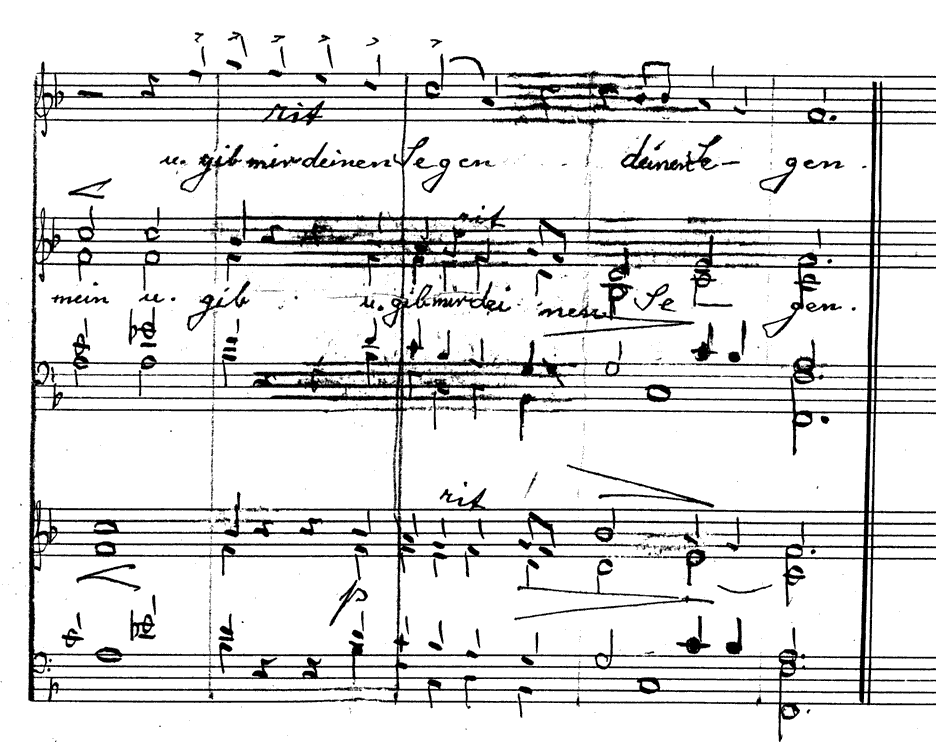 rit
u. gib mir deinen Segen deinen Se- gen.
rit
mein u. gib u. gib mir dei nen Se gen.
rit
p